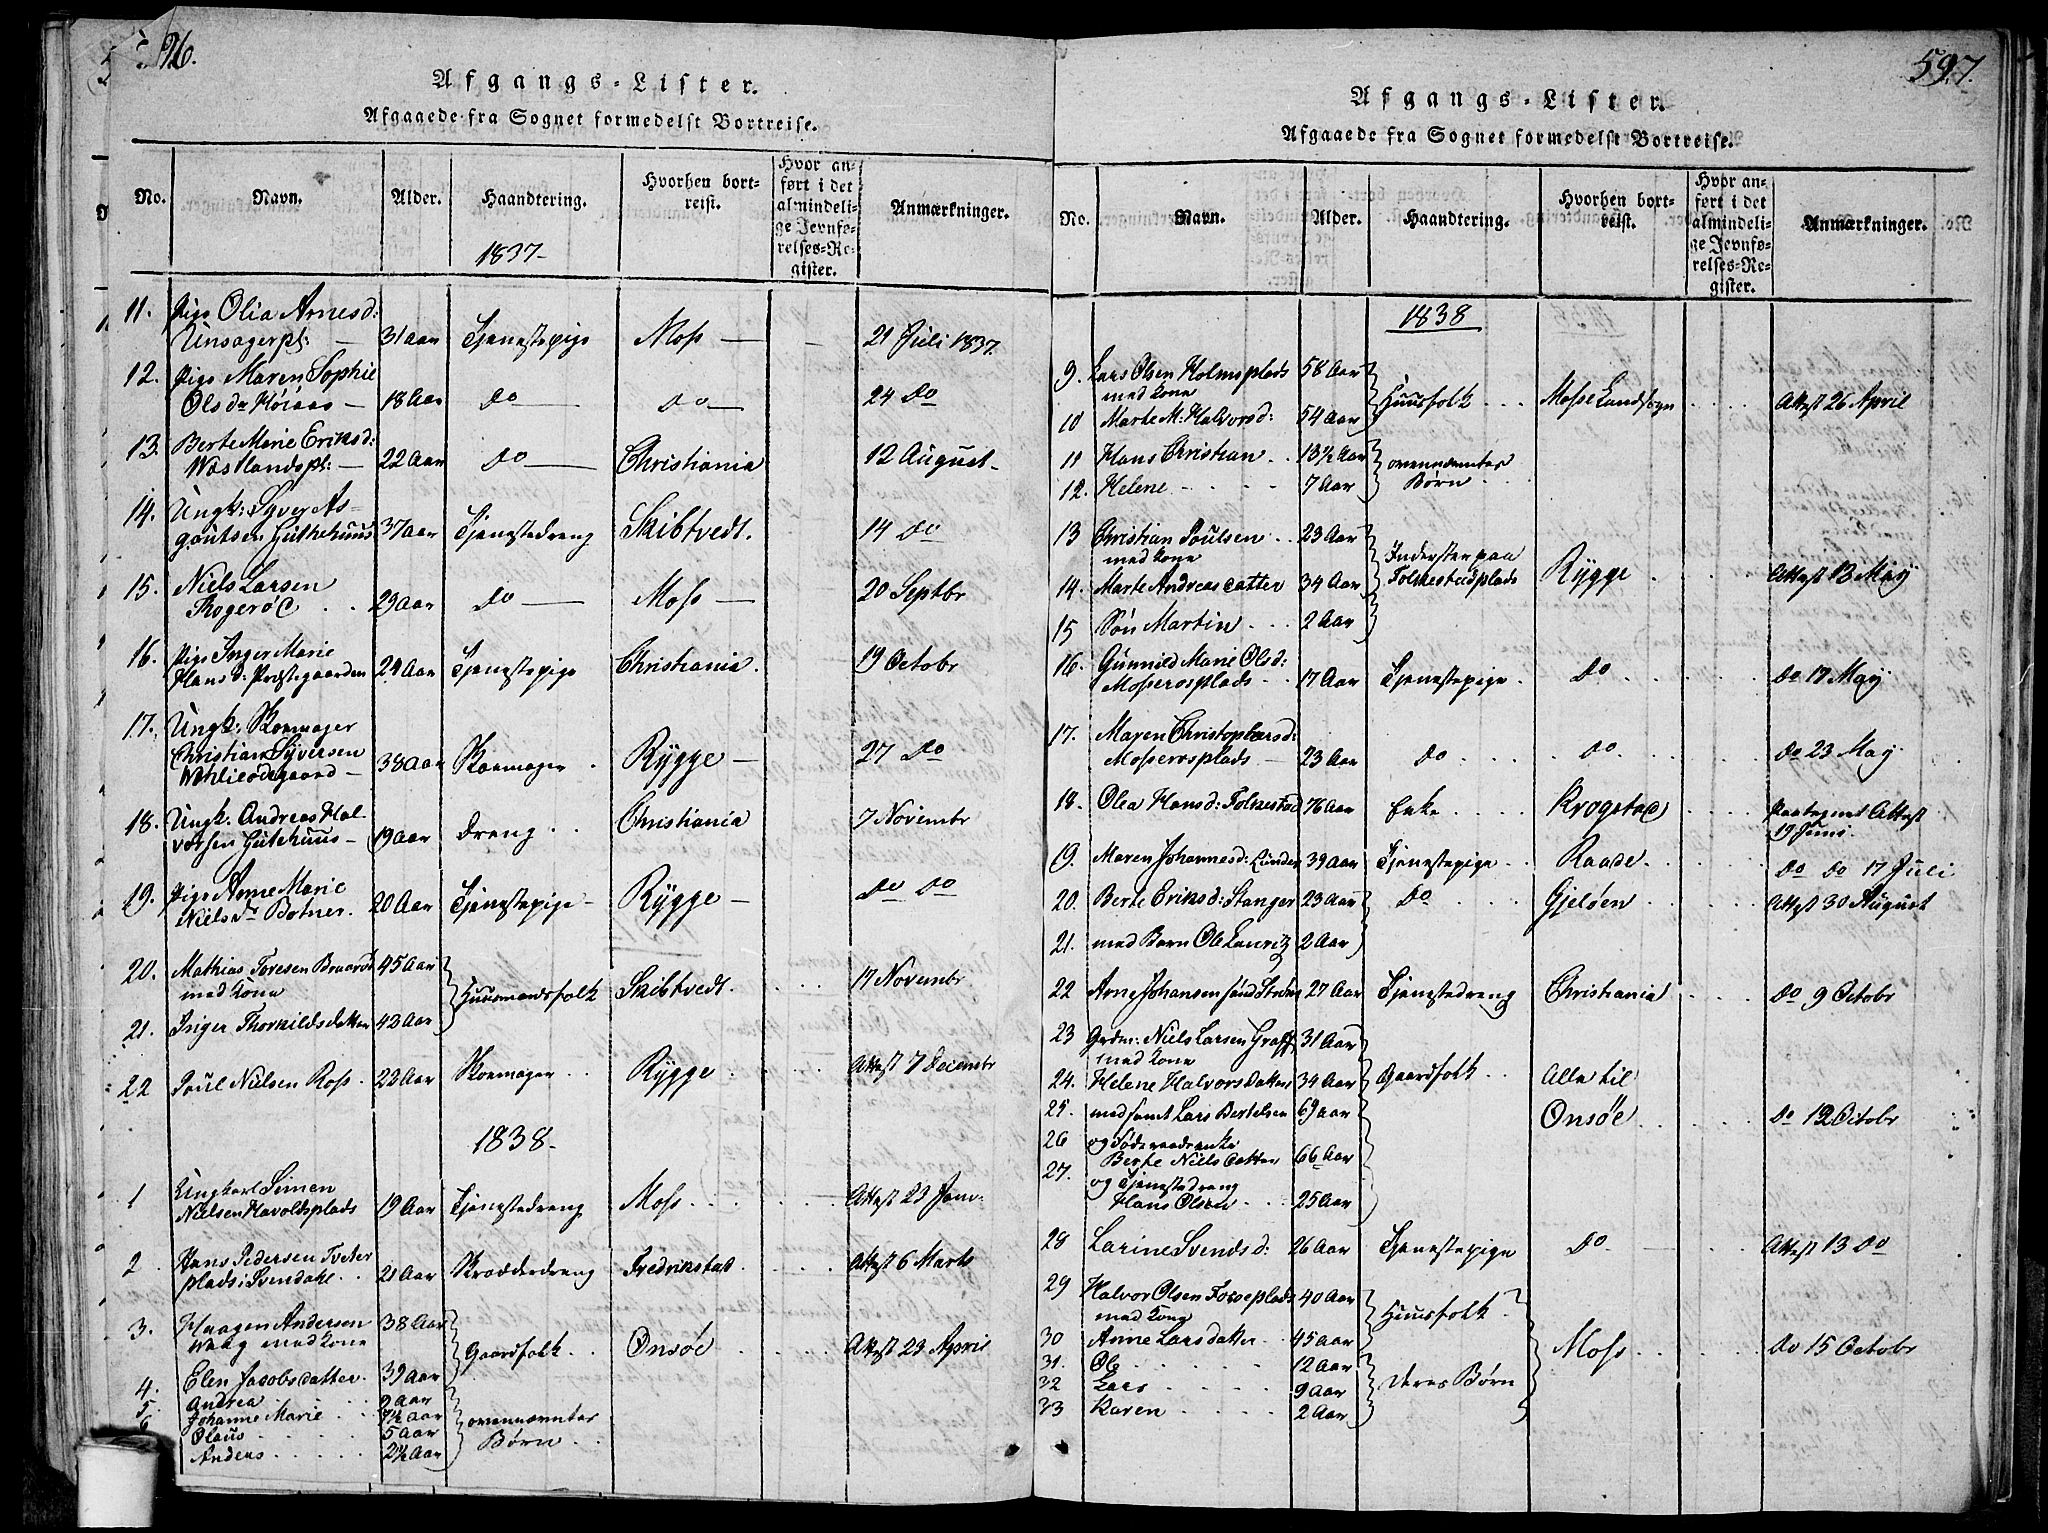 96.
Afgangs-Lister.
Afgaaede fra Sognet formedelst Bortreise.
No. Navn. Alder. Haandtering. Hvorhen bortreist. Hvor anført i det almindelige Jevnførelses-Register. Anmærkninger.
1837-
11. Pige Olia Arnesd:
Unsagerpl: — 31 aar Tjenestepige Moss — 21 Juli 1837.
12. Pige Maren Sophie
Olsdr — 18 Aar do — do — 24 do
13. Berte Marie Eriksd:
Westlandspl: — 22 Aar do — Christiania 12 August -
14. Ungk: Syver As-
goutsen Huthehuus 37 aar Tjenestedreng Skibtvedt. 14 do
15. Niels Larsen
. . 29 aar do — Moss — 20 Septbr
16. Pige Inger Marie
Hansd: Præstegaarden 24 Aar Tjenestepige Christiania. 19 Octobr
17. Ungk: Skomager
Christian Syversen
38 aar Skomager . Rygge — 27 do
18. Ungk: Andreas Hal-
vorsen Huthehuus — 19 aar Dreng . . Christiania 7 Novembr
19. Pige Anne Marie
Nielsdr Botner. 20 Aar Tjenestepige - Rygge — do do
20. Mathias Toresen 45 aar
med Kone Huusmandsfolk Skibtvedt. 17 Novembr
21. Inger Thorkildsdatter 42 aar
22 Poul Nielsen Ross . 22 aar Skomager . . Rygge . . . . Attest 7 Decembr
1838-
1 Ungkarl Simen
Nielsen Haroldsplads 19 Aar Tjenestedreng Moss . . . . . . Attest 23 Janv.
2. Hans Pedersen Tveter
plads i Svendahl . . 21 aar Skrædderdreng Fredrikstad. . . . . Attest 6 Marts
3. Haagen Andersen 38 Aar
med Kone Gaardfolk . . Onsöe . . . . Attest 29 April
4. Elen Jacobsdatter . 39 aar
5. Andrea . . . 9 aar
6 Johanne Marie . . 7½ aar ovennævntes
Olaus . . . . 5 aar Børn . .
Anders . . . . 2½ Aar
597.
Afgangs-Lister.
Afgaaede fra Sognet formedelst Bortreise.
No. Navn. Alder. Haandtering. Hvorhen bortreist. Hvor anført i det almindelige Jevnførelses-Register. Anmærkninger.
1838
9. Lars Olsen Holmsplads 58 Aar
med Kone Huusfolk . . . Mosse Landsogn . . . . Attest 26 April
10 Marte M: Halvorsd: 54 Aar
11 Hans Christian . . 13½ Aar ovennævntes
12. Helene - . . . 7 Aar Børn . . .
13 Christian Poulsen . . 23 Aar
med Kone Inderster paa
14. Marte Andreasdatter 34 Aar Folkestadplads Rygge . . . . Attest 13 May
15 Søn Martin . . . 2 Aar
16. Gunnild Marie Olsd:
Mosserosplads . . 17 Aar Tjenestepige . do . . . . . do 17 May
17. Maren Christophersd:
Mosserosplads — 23 Aar do . . . . do . . . . . do 23 May
18. Olea Hansd: Folkestad 76 aar Enke . . . . Krogstad . . . . Paategnet Attest
19 Juni.
19. Maren Johannesd: Lunder 39 aar Tjenestepige . . Raade . . . . do do 17 Juli
20. Berte Eriksd: Stanger 23 aar do . . . . Gjeløen . . . . Attest 30 August
21. med Barn Ole Lauritz 2 Aar
22 Arne Johansen 27 Aar Tjenestedreng Christiania . . . . do 9 Octobr
23 Grdm: Niels Larsen 31 Aar
med Kone
24. Helene Halvorsdatter 34 Aar Gaardfolk . . Alle til
25. med samt Lars Bertelsen 69 aar Onsöe . . . . . do 12 Octobr
26 og Föderaadsenke
Berte Nielsdatter 66 Aar
27. og Tjenestedreng
Hans Olsen . . . 25 aar
28 Larine Svendsd: 26 aar Tjenestepige do . — . . Attest 13 do
29 Halvor Olsen 40 Aar
med Kone Huusfolk .
30 Anne Larsdatter . . 45 aar Moss . . . . . do 15 Octobr
31. Ole . . . . . 12 Aar
32 Lars . . . . 9 Aar deres Børn
33 Karen . . . . 2 Aar